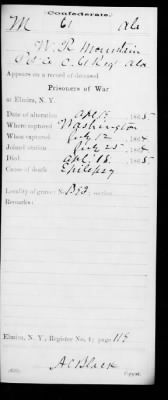 Confederate.
M 61 Ala
W. R. Mountain
Co. C 61 Regt Ala
Appears on a record of deceased
Prisoners of War
at Elmira, N. Y.
Date of alteration Apl 18, 1865
Where captured Washington
When captured July 12, 1864
Joined station July 25, 1864
Died Apl 18, 1865
Cause of death Epilepsy
Locality of grave: No.
Remarks:
Elmira, N. Y., Register No. 4; page 115
A C Black
Copyist.